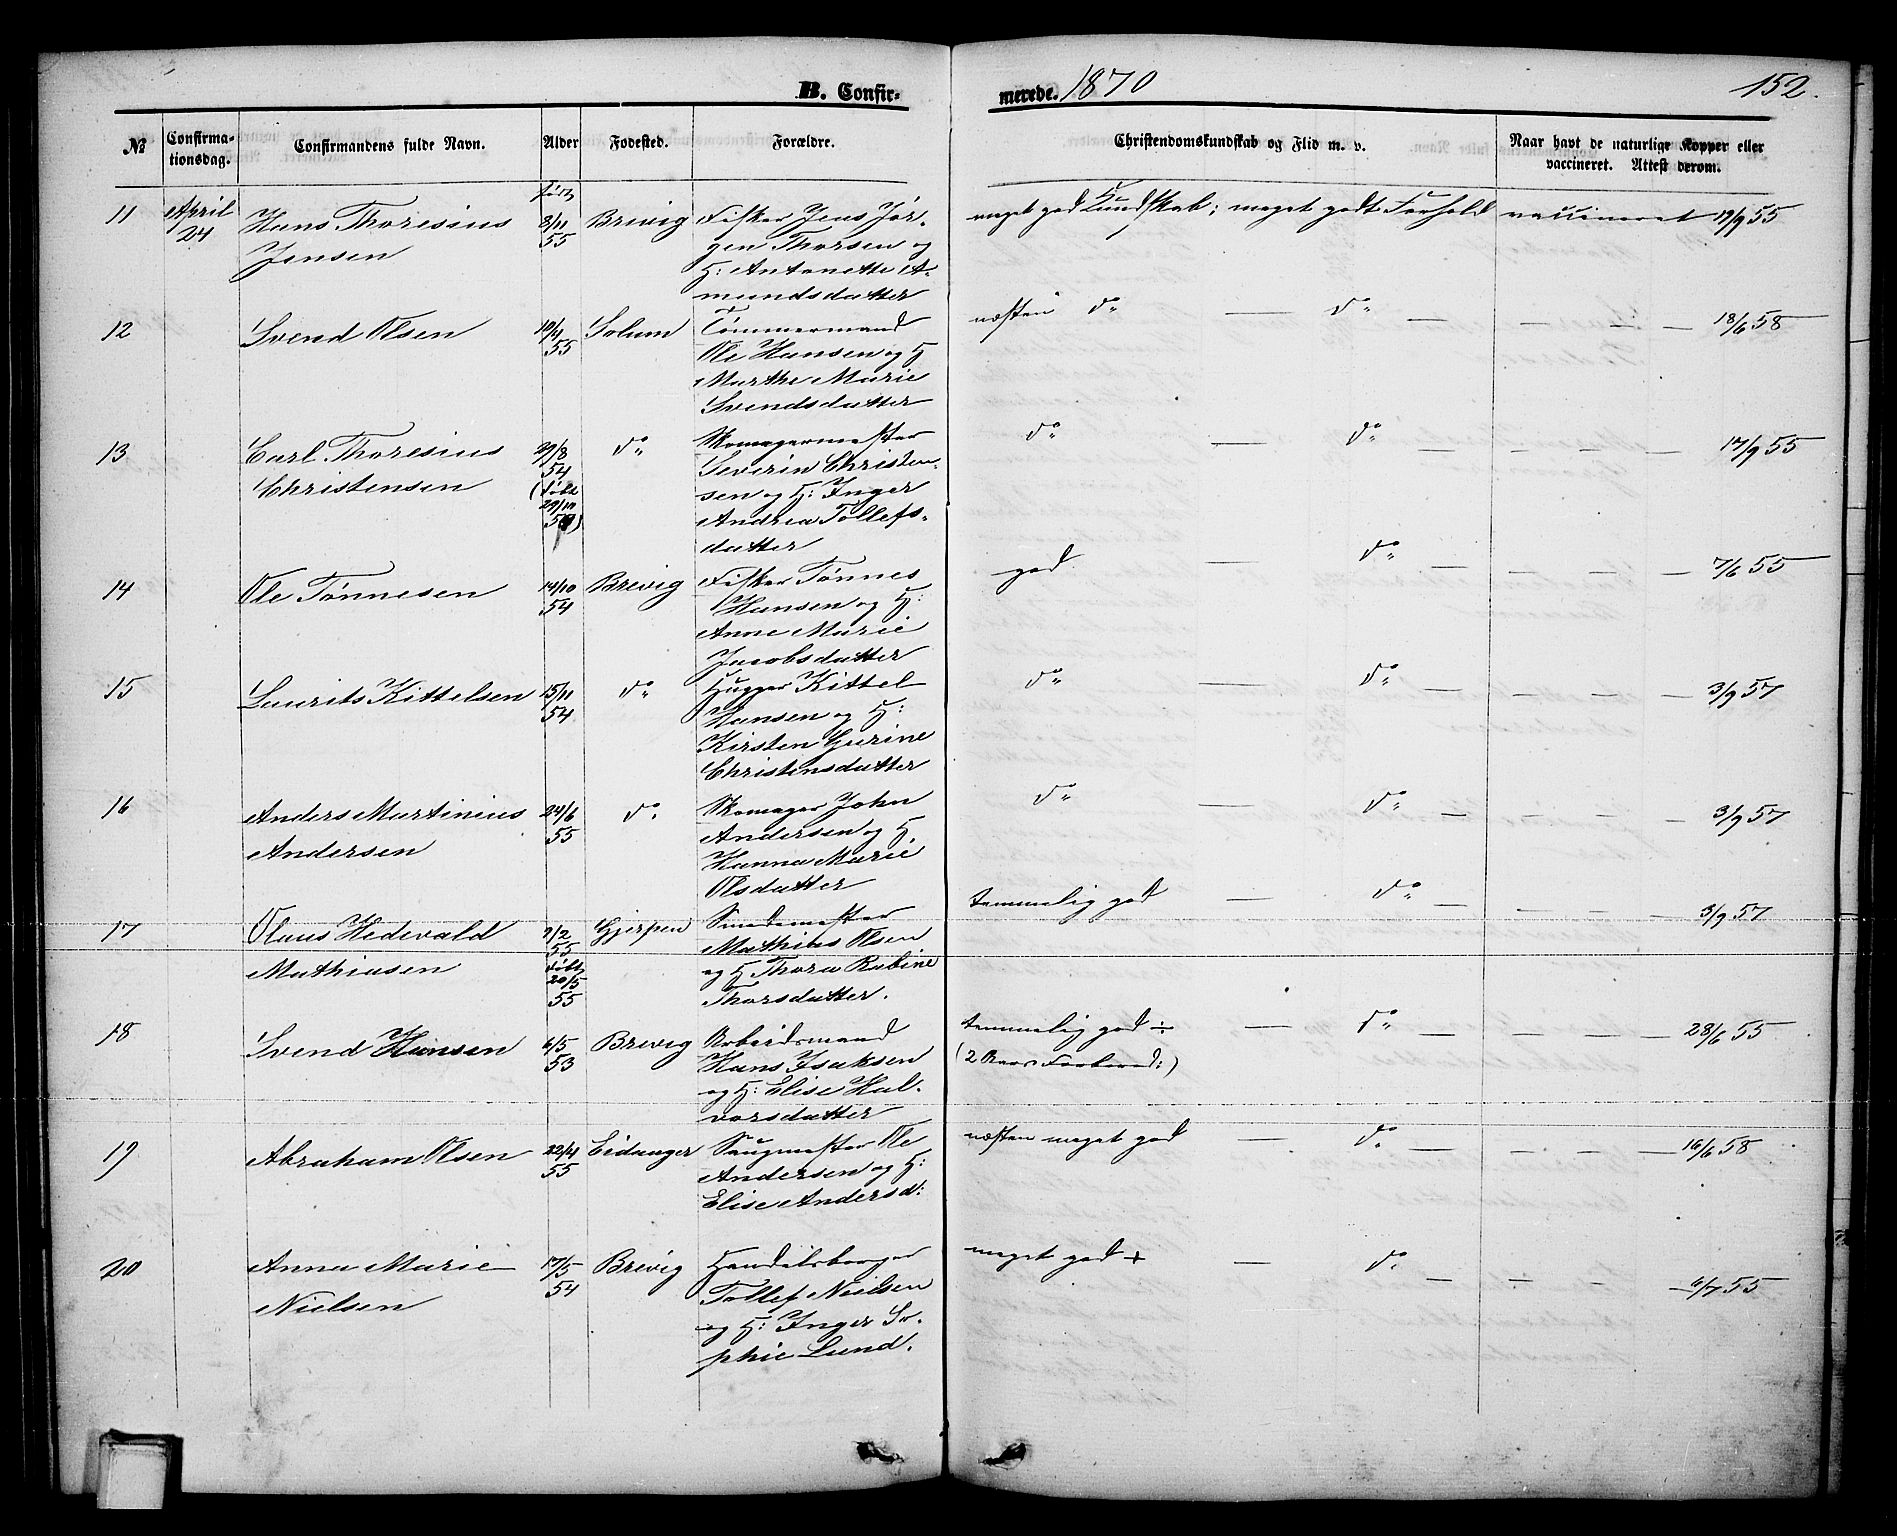 B. Confir-
merede. 1870
152.
No
Confirma-
tionsdag.
Confirmandens fulde Navn.
Alder
Fødested.
Forældre.
Christendomskundskab og Flid m. v.
Naar havt de naturlige Kopper eller
vaccineret. Attest derom.
født
11 April Hans Thoresius 8/11 Brevig Fisker Jens Jør- meget god Kundskab; meget godt Forhold vaccineret 19/9 55
24 Jensen 55 gen Thorsen og
H: Antonette A-
mundsdatter
12 Svend Olsen 10/4 Solum Tømmermand næsten do — do — — — — 18/6 58
55 Ole Hansen og H
Marthe Marie
Svendsdatter
13 Carl Thoresius 29/8 do Skomagermester do — do — — — — 17/9 55
Christensen 54 Severin Christen-
(døbt sen og H: Inger
29/10 Andrea Tollefs-
datter
14 Ole Tønnesen 14/10 Brevig Fisker Tønnes god — do — — — — 7/6 55
54 Hansen og H:
Anne Marie
Jacobsdatter
15 Laurits Kittelsen 15/11 do Hugger Kittel do — do — — — — 3/9 57
54 Hansen og H:
Kirsten Gurine
Christensdatter
16 Anders Martinius 24/6 do Skomager John do — do — — — — 3/9 57
Andersen 55 Andersen og H.
Hanna Marie
Olsdatter
17 Olaus Hedevald 2/2 Gjerpen Smedemester temmelig god — do — — — — 3/9 57
Mathiasen 55 Mathias Olsen
døbt og H Thora Rabine
20/5 Thorsdatter.
55
18 Svend Hansen 6/5 Brevig Arbeidsmand temmelig god ÷ — do — — — — 28/6 55
53 Hans Isaksen (2 Aars Forbered:)
og H: Elise Hal-
vorsdatter
19 Abraham Olsen 22/4 Eidanger Saugmester Ole næsten meget god — do — — — — 16/6 58
55 Andersen og H:
Elise Andersd:
20 Anna Marie 17/5 Brevig Handelsborger meget god + — do — — — — 6/7 55
Nielsen 54 Tollef Nielsen
og H: Inger So-
phie Lund.